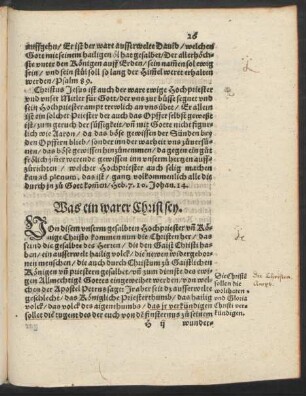 26
auffgehn/ Er ist der ware ausserwelte Dauid/ welchen
Gott mit seinem hailigen öl hat gesalbet/ Der allerhöch-
ste vnter den Königen auff Erden/ sein namen sol ewig
sein/ vnd sein stůl sol so lang der Himel weret erhalten
werden/ Psalm 89.
Christus Jesus ist auch der ware ewige Hochpriester
vnd vnser Mitler für Gott/ der von vns büsst segnet vnd
sein Hochpriester ampt trewlich an vns thut/ Er allein
ist ein solcher Priester der auch das Opffer selbst gewest
ist/ zum geruch der süssigkeit/ nit mit Gotte nicht figur-
lich wie Aaron/ da das böse gewissen der Sünden bey
den Opffern blieb/ sonder inn der warheit vns zůuersü-
nen/ das böse gewissen hinzůnemen/ da gegen ein gůt
frölich zůuer werende gewissen inn vnserm hertzen auffzů-
richten/ welcher Hochpriester auch selig machen
kan ad plenum, das ist/ gantz volkommenlich alle die
durch jn zů Gott kommen/ Heb. 7. 10. Johan. 14.
Was ein warer Christ sey.
Von disem vnserm gesalbten Hochpriester vn̄ Kö-
nige Christo kommen nun die Christen her/ das
seind die gesalbte des Herren/ die den Gaist Christi ha-
ben/ ein ausserwelt hailig volck/ die new widergebor-
nen menschen/ die auch durch Christum zů Gaistlichen
Königen vn̄ priestern gesalbet/ vnd zům dienste des ewi-
gen Allmechtigē Gottes eingeweihet werden/ von wel-
chen der Apostel Petrus saget Jr aber seit dz ausserwelte
geschlecht/ das Königliche Priesterthumb/ das hailig
volck/ das volck des aigenthumbs/ das jr verkündigen
sollet die tugent des der euch von der finsternus zů seinem
G ij wunder-
Die Christē
sollen die
wolthaten
vnd Gloria
Christi ver-
kündigen.
Die Christen